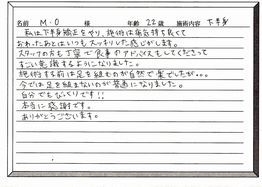 名前 M・O 様 年齢 22歳 施術内容 下半身
私は下半身矯正をやり、施術は毎気持ち良くて
おわったあとはいつもスッキリした感じがします。
スタッフの方も丁寧で食事のアドバイスもしてくださって
すごい意識するようになりました。
施術する前は足を組むのが自然で楽でしたが…
今では足を組まないのが普通になりました。
自分でもびっくりです!!
本当に感謝です。
ありがとうございます。